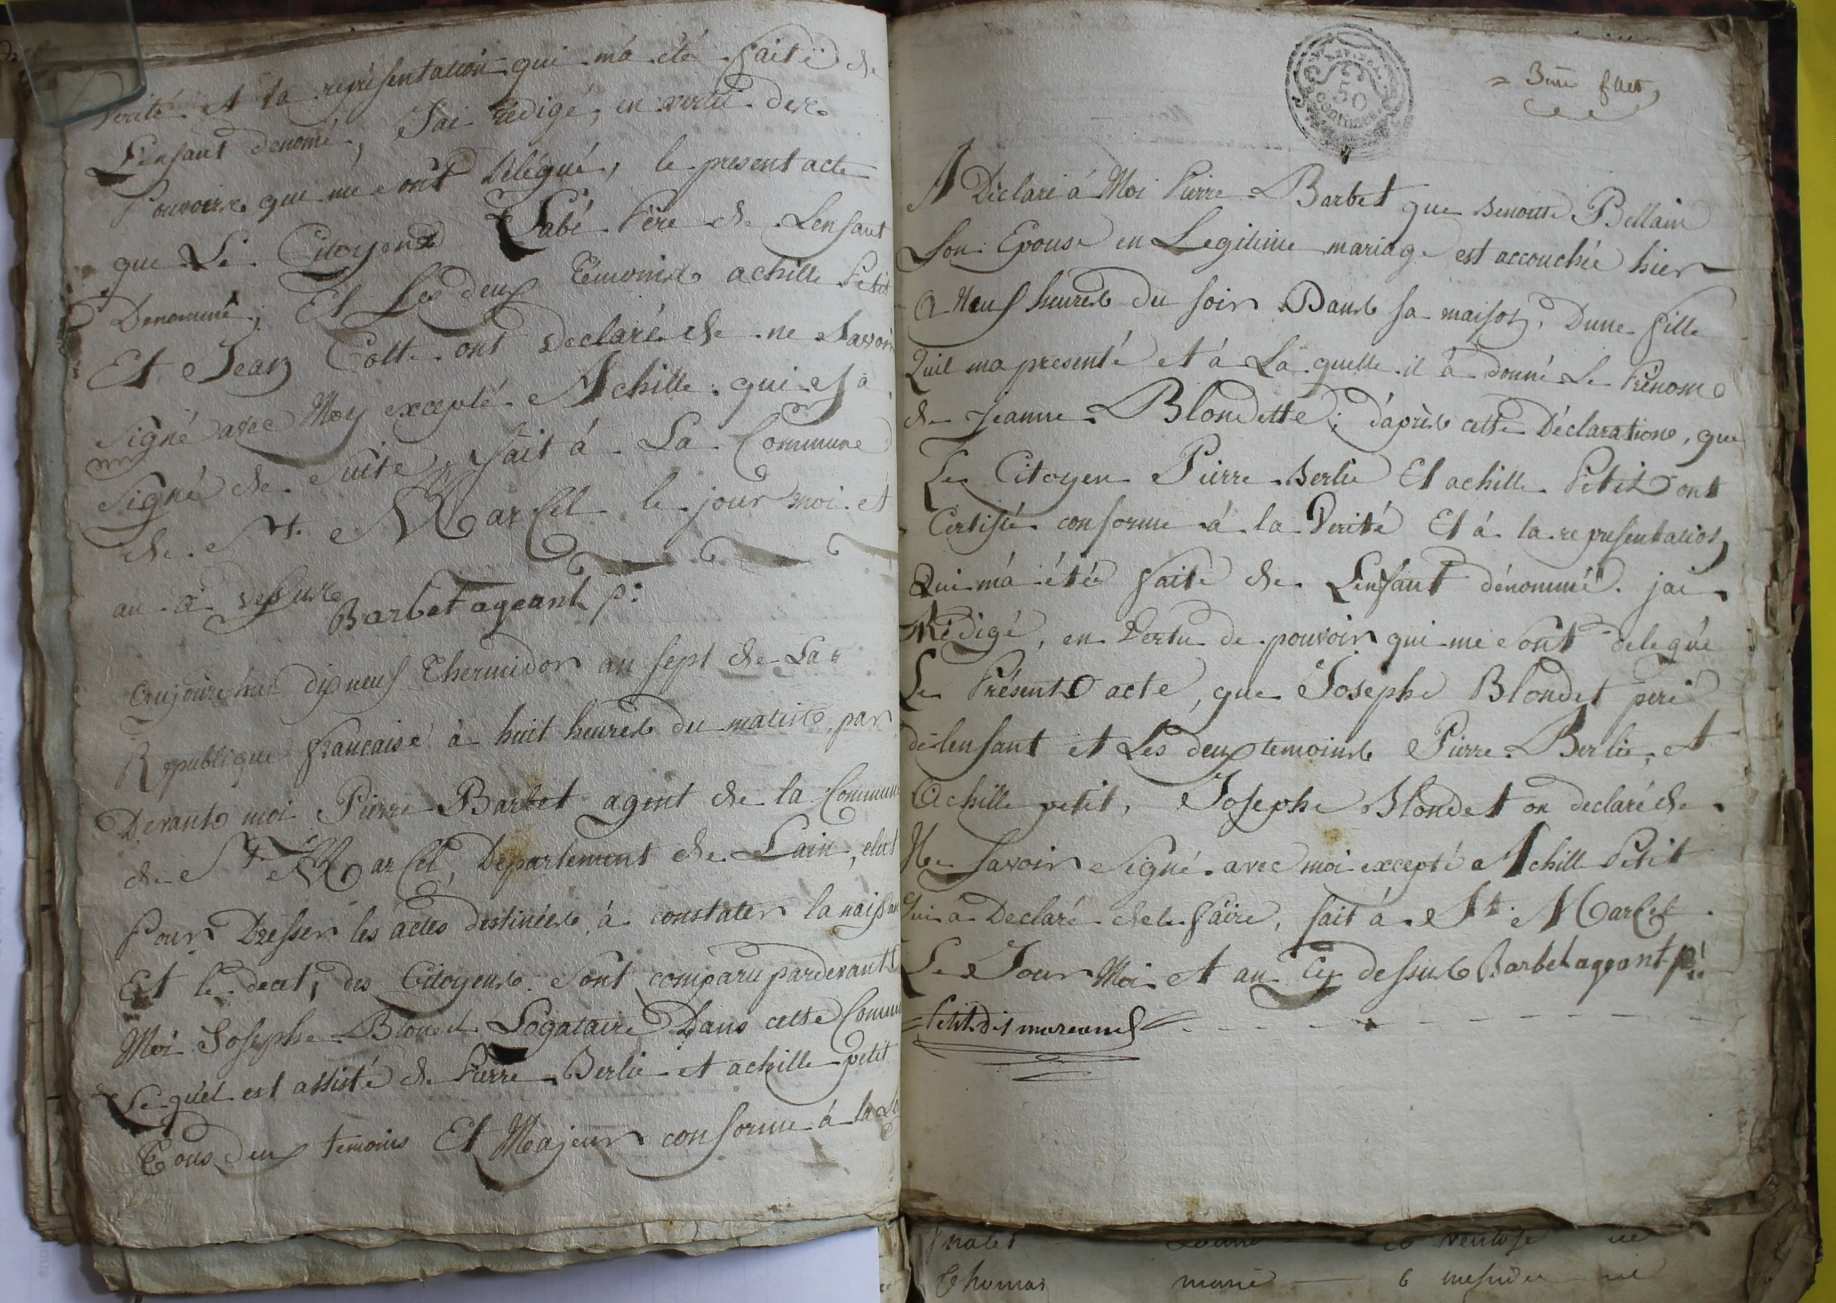 verité et la représentation qui m'a été faite de
L'enfant denomé, J'ai redigé, en vertu des
Pouvoirs qui me sont délégué, le present acte
que Le Citoyens Labé Père de Lenfant
Denommé, Et Les deux Témoins achille Petit
Et Jean Colte ont declaré de ne Savoir
Signé avec Moy excepté Achille qui a
Signé de suite, fait á La Commune
de St. Marcel le jour moi et
an a dessus
Barbet ageant p:
aujourdhui dixneuf Thermidor an sept de La
Republique francaise à huit heures du matin par
Devant moi Pierre Barbet agent de la Commune
de St. Marcel, Departement de Lain, elut
Pour Dresser les actes destinées à constater la naissance
Et le decet, des Citoyens. Sont comparu pardevant
Moi Josephe Blondet Logataire Dans cette Commune
Le quel est assisté de Pierre Berlie et achille petit
Tous deux temoins Et Majeur conforme à la Loi
50
centimes
A Déclaré á Moi Pierre Barbet que Benoite Bellain
Son Epouse en Legitime mariage est accouchée hier
a Neuf heures du soir Dans sa maison, Dune fille
Quil ma presenté et à La quelle il à donné Le Prénom
de Jeanne Blondette; d'après cette Déclaration, que
Le Citoyen Pierre Berlie Et achille Petit ont
Certifié conforme á la Verité Et á la representation
Qui má été faite de Lenfant dénommé. jai
Redigé, en Vertu de pouvoir qui me sont delegué
Le Présent acte, que Josephe Blondet peré
de lenfant et Les deux temoins Pierre Berlie, et
Achille petit, Josephe Blondet on declaré de
Ne Savoir Signé avec moi excepté Achill Petit
Qui a Declaré de le faire, fait á St. Marcel
Le Jour Moi et an Cy dessus Barbet ageant p:
Petit dit
Louise ventose
Thomas marie 6 mesidor